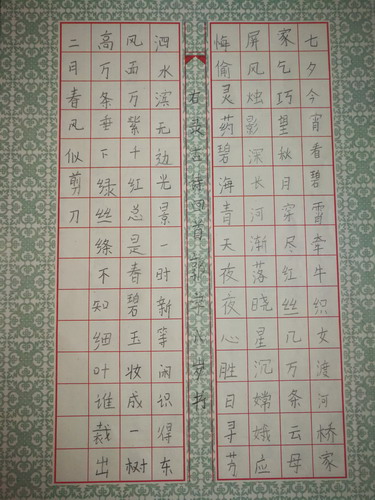 七夕今宵看碧霄牵牛织女渡河桥家
家乞巧望秋月穿尽红丝几万条云母
屏风烛影深长河渐落晓星沉嫦娥应
悔偷灵药碧海青天夜夜心胜日寻芳
右录古诗四首
泗水滨无边光景一时新等闲识得东
风面万紫千红总是春碧玉妆成一树
高万条垂下绿丝绦不知细叶谁裁出
二月春风似剪刀